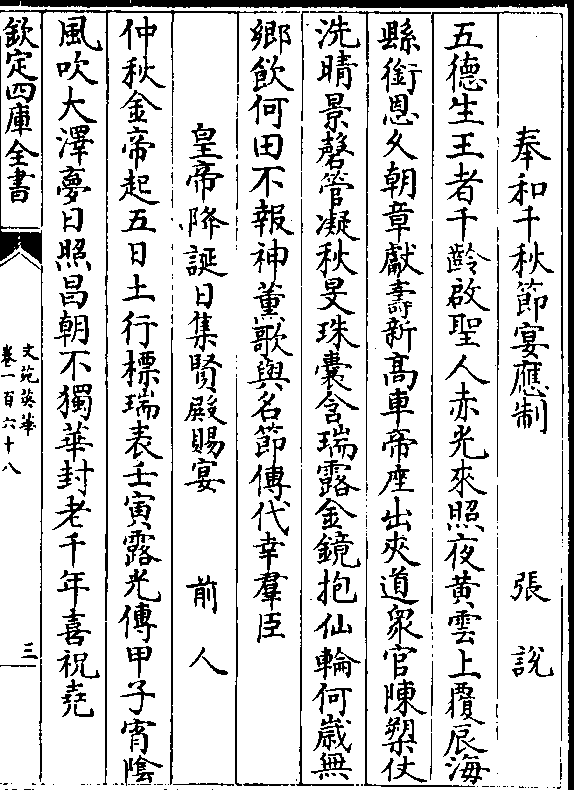 奉和千秋節宴應制　張說
五德生王者千齡啟聖人赤光來照夜黃雲上覆辰海
縣銜恩久朝章獻壽新高車帝座出夾道眾官陳槊仗
洗晴景磬管凝秋旻珠囊含瑞露金鏡抱仙輪何歲無
鄉飲何田不報神薰歌與名節傳代幸羣臣
皇帝降誕日集賢殿賜宴　前人
仲秋金帝起五日土行標瑞表壬寅露光傳甲子宵陰
風吹大澤夢日照昌朝不獨華封老千年喜祝堯
欽定四庫全書
文苑英華
卷一百六十八
三